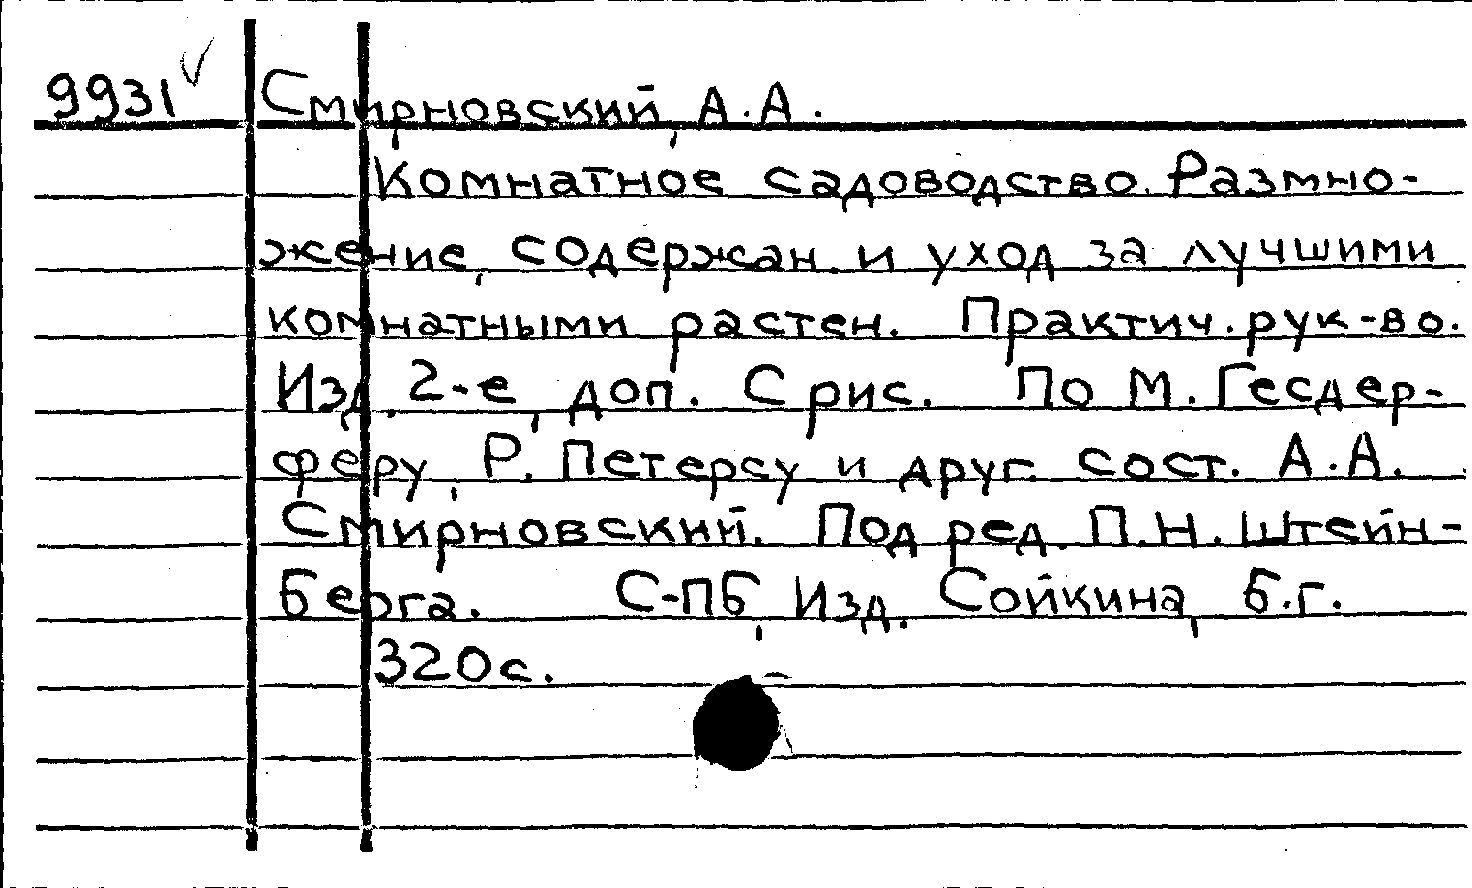 9931 Смирновский, А.А.
Комнатное садоводство. Размно-
жение, содержан. и уход за лучшими
комнатными растен. Практич. рук-во.
Изд. 2-е, доп. С рис. По М. Гесдер-
феру, Р. Петерсу и друг. сост. А.А.
Смирновский. Под ред. П.Н. Штейн-
берга. С-ПБ, Изд. Сойкина, б.г.
320с.